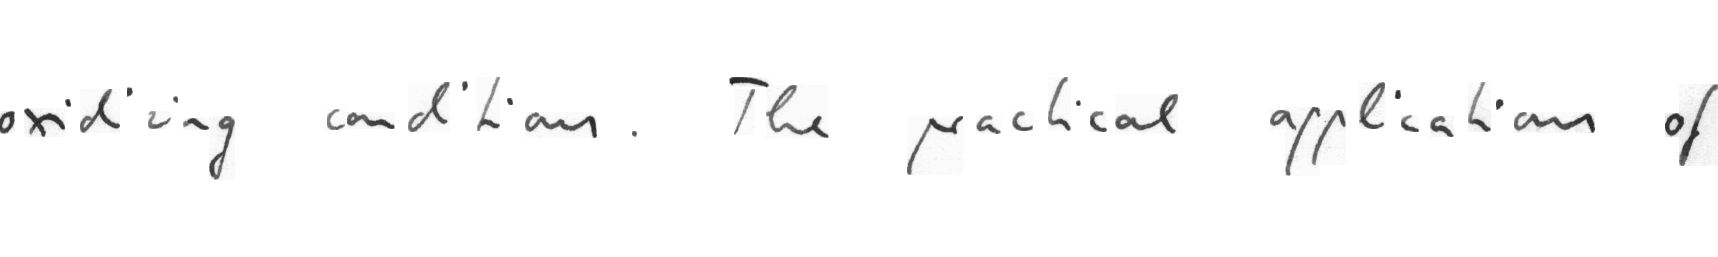 oxidizing conditions. The practical applications of